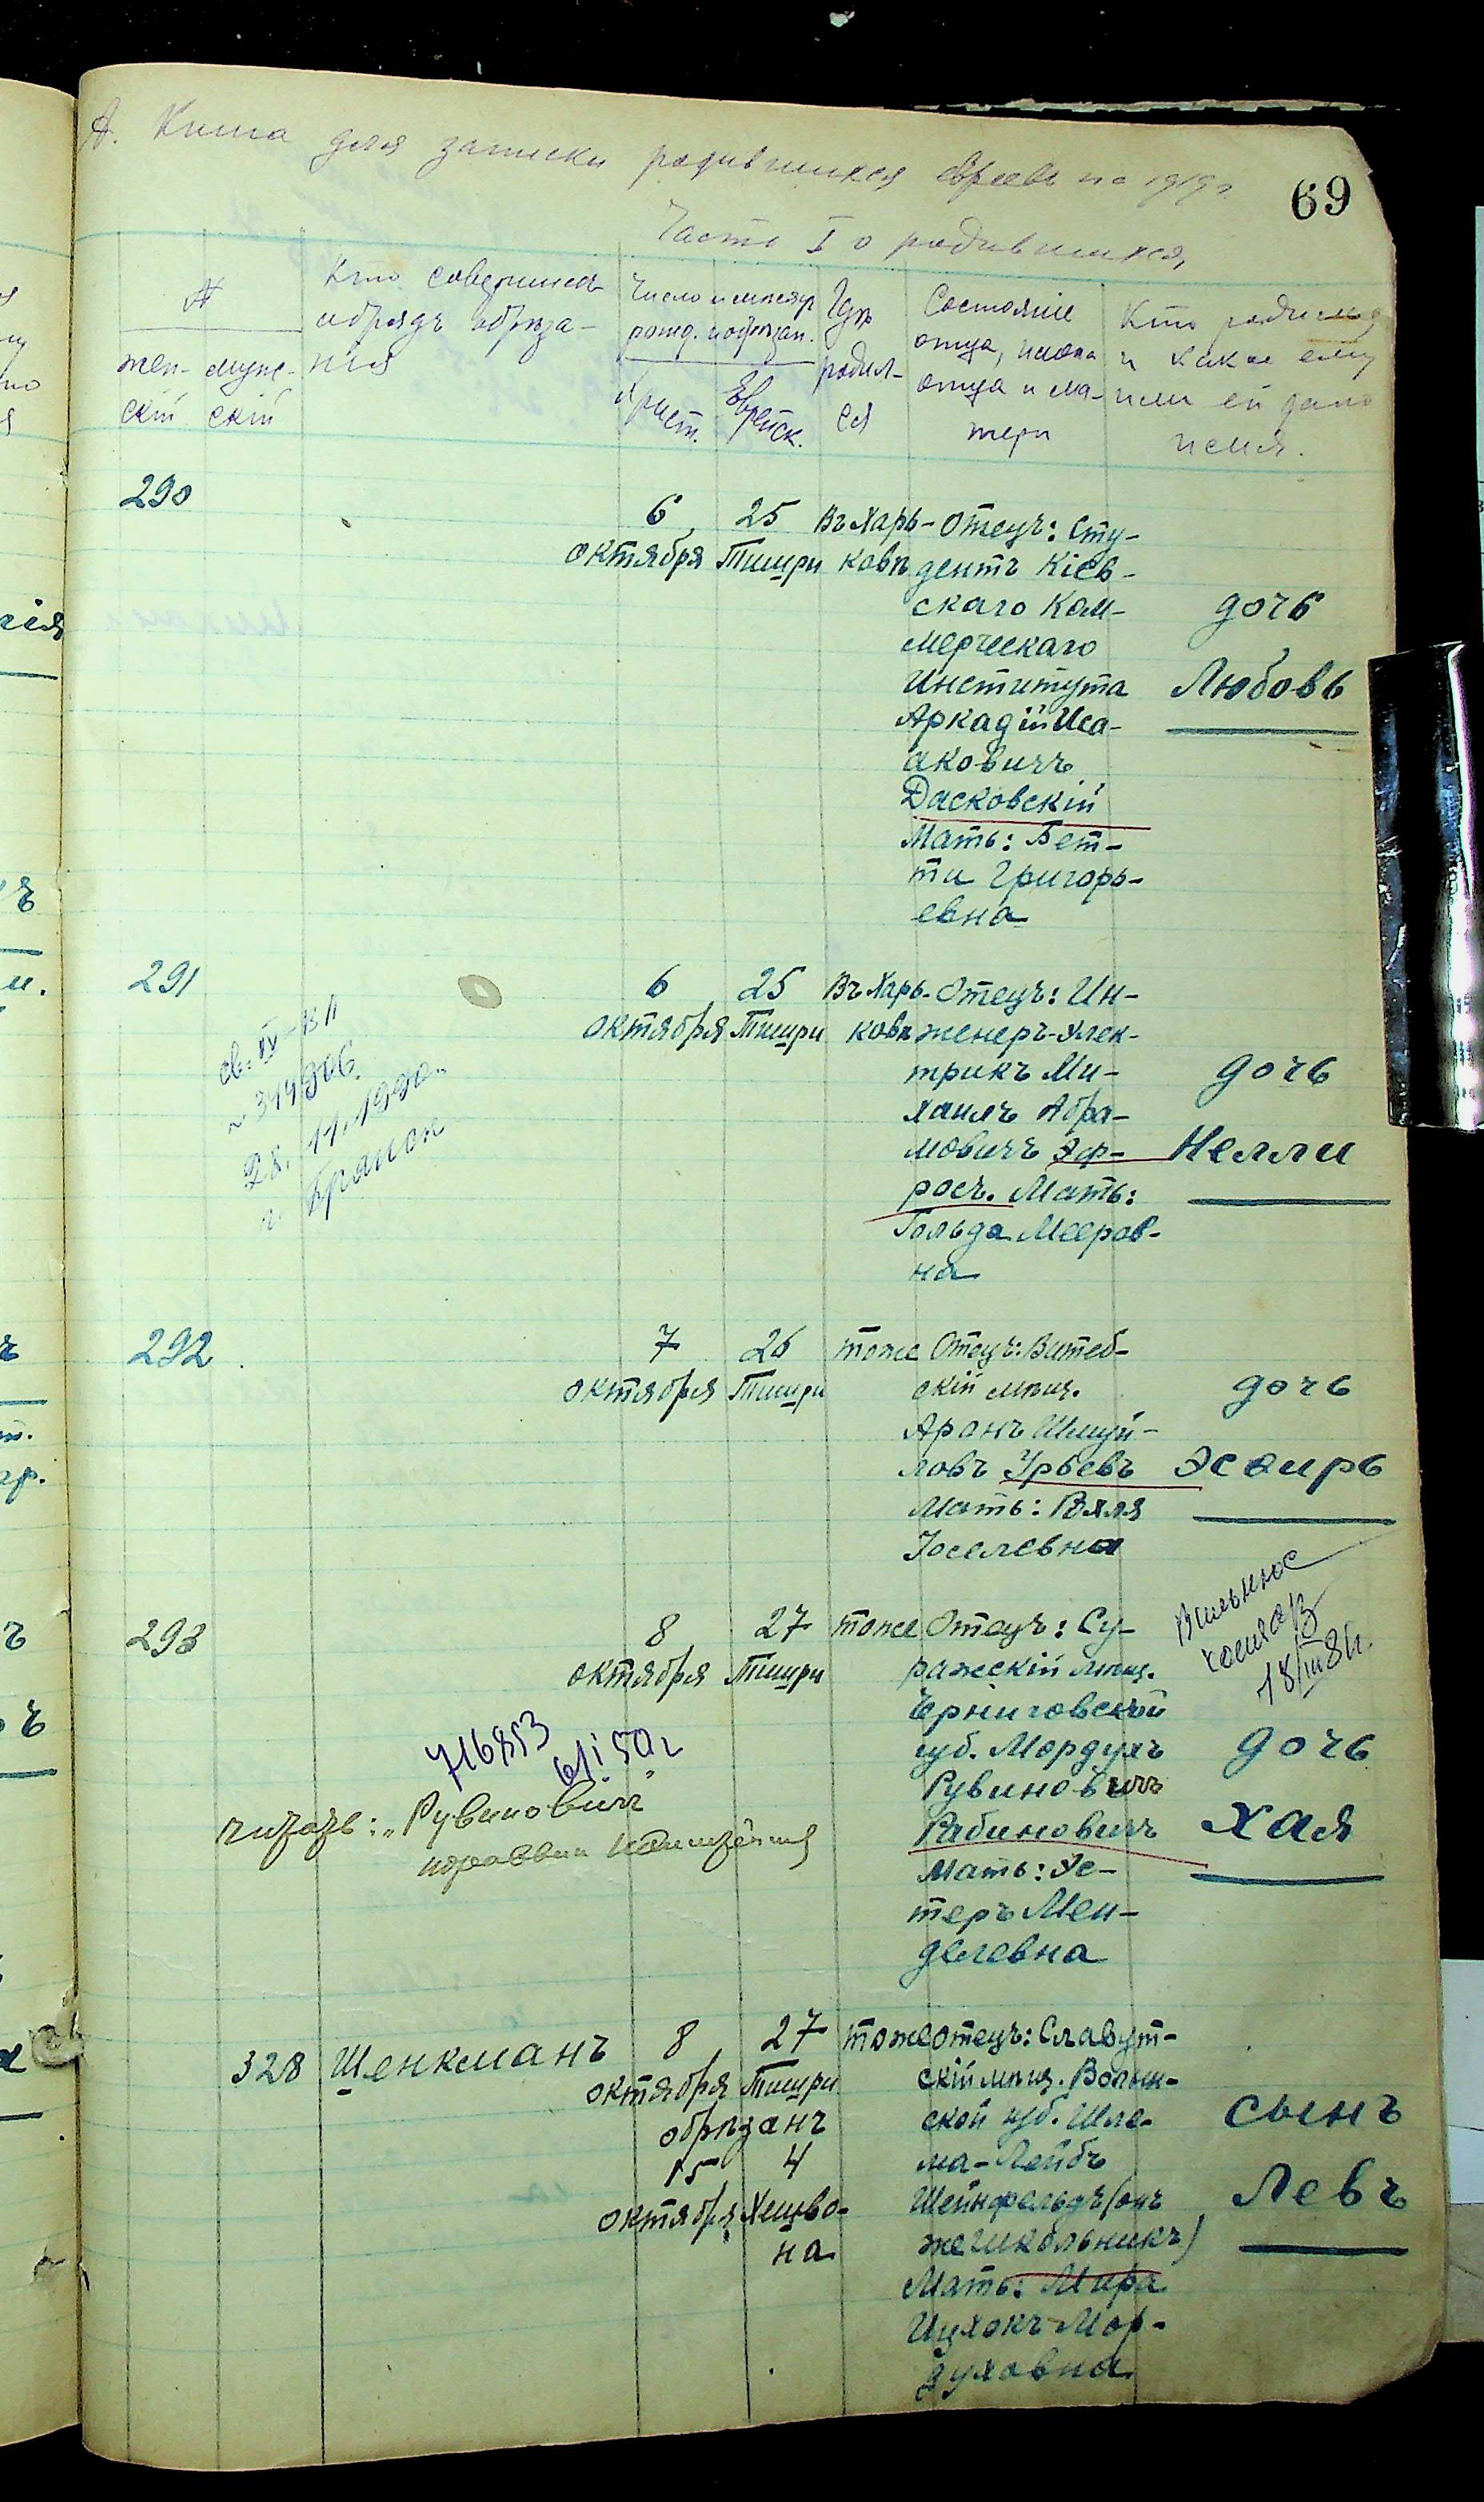 А. Книга для записки родившихся евреевъ на 1919 г.
69
Часть I о родившихся.
№
жен- муж-
скій скій
Кто совершил
обрядъ обрѣза-
нія
Число и мѣсяц
рожд. и обрѣзан.
Христ. Еврейск.
Гдѣ
родил-
ся
Состояніе
отца, имена
отца и ма-
тери
Кто родился
и какое ему
или ей дано
имя.
290
6 октября
25 Тишри
Въ Харь-
ковѣ
Отецъ: Сту-
дентъ Кіев-
скаго Ком-
мерческаго
Института
Аркадій Иса-
аковичъ
Дасковскій
Мать: Бет-
ти Григорь-
евна
дочь
Любовь
291
св. IV-ВЛ
28. 11. 1990.
г. Брянск
6 октября
25 Тишри
Въ Харь-
ковѣ
Отецъ: Ин-
женеръ-Элек-
трикъ Ми-
хаилъ Абра-
мовичъ Эф-
росъ. Мать:
Гольда Мееров-
на
дочь
Нелли
292
7 октября
26 Тишри
тоже
Отецъ: Витеб-
скій мѣщ.
Аронъ Шмуй-
ловъ Урьевъ
Мать: Рэля
Іоселевна
дочь
Эсѳирь
293
716853
6/I 50 г
читать: „Рувинович"
8 октября
27 Тишри
тоже
Отецъ: Су-
ражскій мѣщ.
Черниговской
губ. Мордухъ
Рувиновичъ
Рабиновичъ
Мать: Эс-
теръ Мен-
делевна
18/III 81г.
дочь
Хая
328
Шенкманъ
8 октября
27 Тишри
обрѣзанъ
15 октября
4 Хешво-
на
тоже
Отецъ: Славут-
скій мѣщ. Волын-
ской губ. Шле-
ма-Лейбъ
Шейнфельдъ (онъ
же Школьникъ)
Мать: Мира
Ицхокъ-Мор-
духовна
сынъ
Левъ